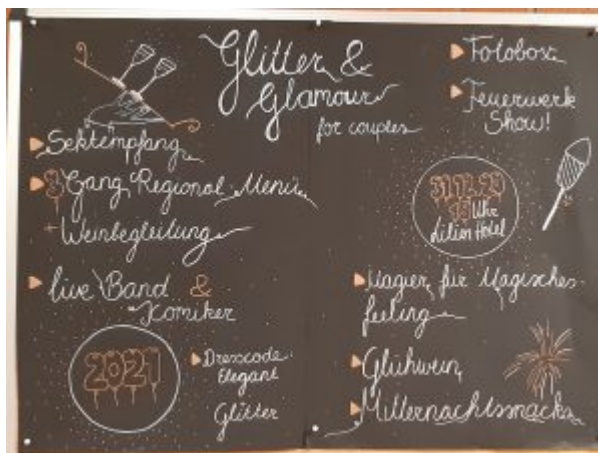 Glitter &
Glamour
for couples
Sektempfang
8 Gang Regional Menü
+ Weinbegleitung
live Band &
Komiker
2021
Dresscode:
Elegant
Glitter
Fotobox
Feuerwerk
Show!
31.12.20
18 Uhr
Lilien Hotel
Magier für Magisches
feeling
Glühwein
Mitternachtssnacks